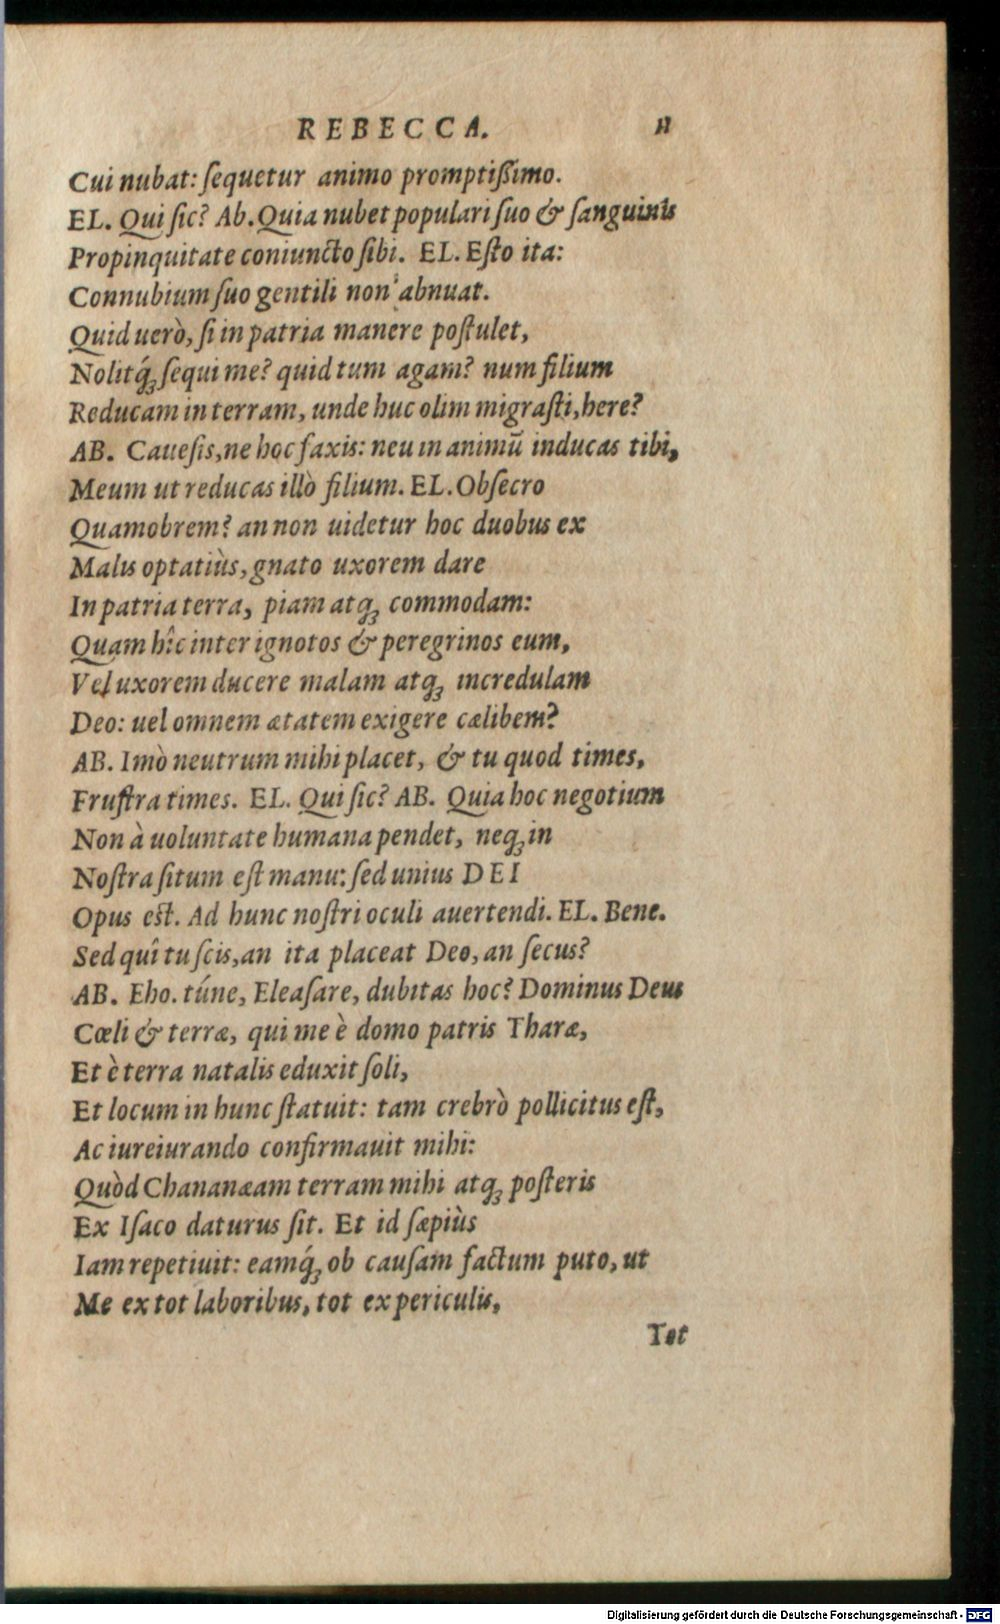 REBECCA. 11
Cui nubat: ſequetur animo promptiſſimo.
EL. Qui ſic? Ab. Quia nubet populari ſuo & ſanguinis
Propinquitate coniuncto ſibi. EL. Eſto ita:
Connubium ſuo gentili non abnuat.
Quid uerò, ſi in patria manere poſtulet,
Nolitq́ꝫ ſequi me? quid tum agam? num filium
Reducam in terram, unde huc olim migraſti, here?
AB. Caueſis, ne hoc faxis: neu in animū inducas tibi,
Meum ut reducas illò filium. EL. Obſecro
Quamobrem? an non uidetur hoc duobus ex
Malis optatiùs, gnato uxorem dare
In patria terra, piam atqꝫ commodam:
Quam hîc inter ignotos & peregrinos eum,
Vel uxorem ducere malam atqꝫ incredulam
Deo: uel omnem ætatem exigere cælibem?
AB. Imò neutrum mihi placet, & tu quod times,
Fruſtra times. EL. Qui ſic? AB. Quia hoc negotium
Non à uoluntate humana pendet, neqꝫ in
Noſtra ſitum eſt manu: ſed unius DEI
Opus est. Ad hunc noſtri oculi auertendi. EL. Bene.
Sed quî tu ſcis, an ita placeat Deo, an ſecus?
AB. Eho. túne, Eleaſare, dubitas hoc? Dominus Deus
Cœli & terræ, qui me è domo patris Tharæ,
Et è terra natalis eduxit ſoli,
Et locum in hunc ſtatuit: tam crebrò pollicitus eſt,
Ac iureiurando confirmauit mihi:
Quòd Chananæam terram mihi atqꝫ poſteris
Ex Iſaco daturus ſit. Et id ſæpiùs
Iam repetiuit: eamq́ꝫ ob cauſam factum puto, ut
Me ex tot laboribus, tot ex periculis,
Tot
Digitalisierung gefördert durch die Deutsche Forschungsgemeinschaft - DFG